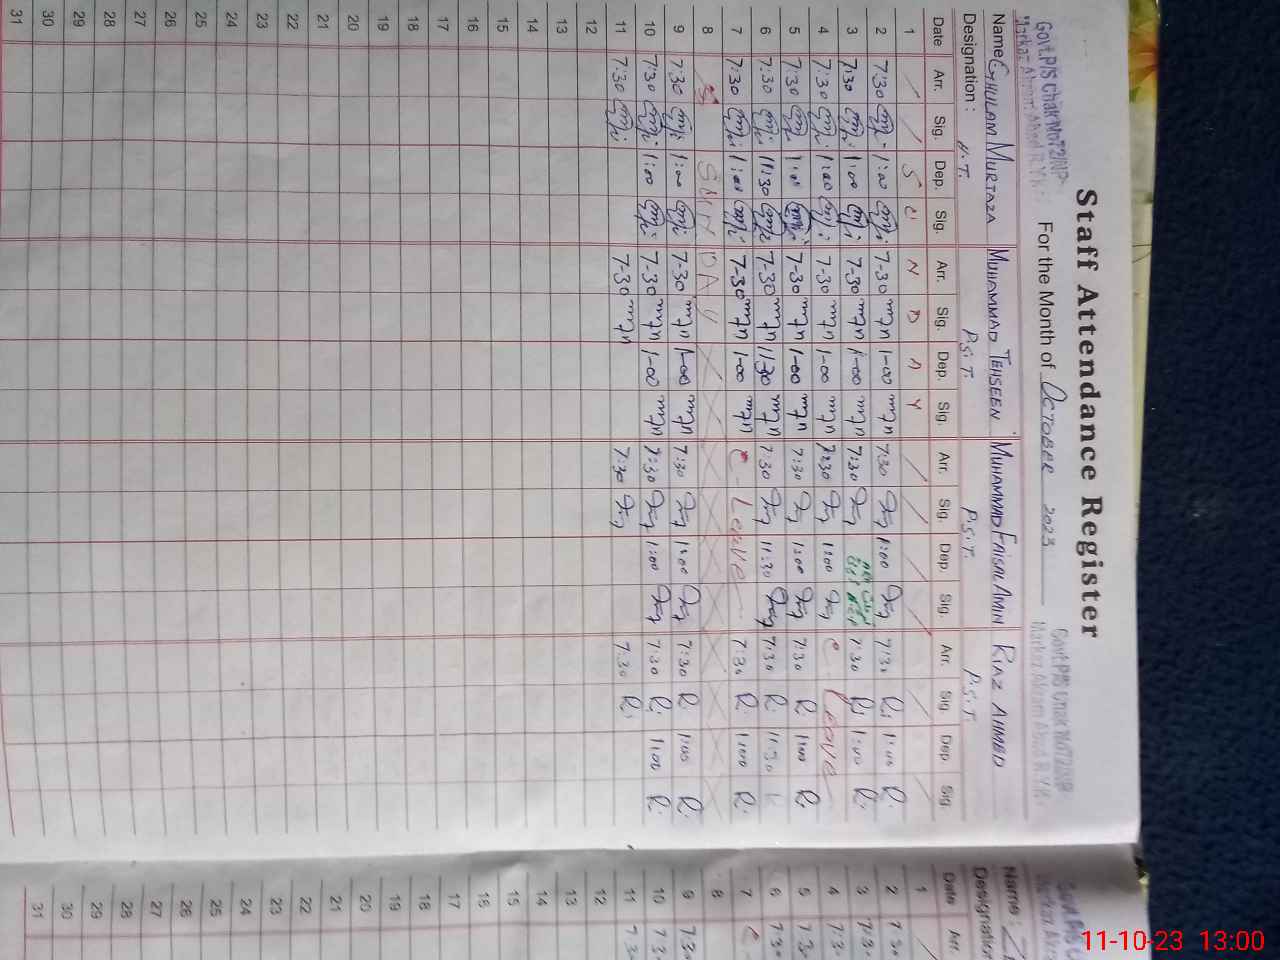 Staff Attendance Register
Govt.P/S Chak No 72/NP
Markaz Akram Abad R.Y.K.
For the Month of OCTOBER 2023
Govt.P/S Chak No 72/NP
Markaz Akram Abad R.Y.K.
Name GHULAM MURTAZA MUHAMMAD TEHSEEN MUHAMMAD FAISAL AMIN RIAZ AHMED
Designation : H.T. P.S.T. P.S.T. P.S.T.
Date Arr. Sig. Dep. Sig. Arr. Sig. Dep. Sig. Arr. Sig. Dep. Sig. Arr. Sig. Dep. Sig.
1 S U N D A Y
2 7:30 1:00 7-30 1-00 7:30 1:00 7:30 1:00
3 7:30 1:00 7-30 1-00 7:30 7:30 1:00
4 7:30 1:00 7-30 1-00 7:30 1:00 C - Leave
5 7:30 1:00 7-30 1-00 7:30 1:00 7:30 1:00
6 7:30 11:30 7-30 11-30 7:30 11:30 7:30 11:30
7 7:30 1:00 7-30 1-00 C - Leave - 7:30 1:00
8 S U N D A Y
9 7:30 1:00 7-30 1-00 7:30 1:00 7:30 1:00
10 7:30 1:00 7-30 1-00 7:30 1:00 7:30 1:00
11 7:30 7-30 7:30 7:30
12
13
14
15
16
17
18
19
20
21
22
23
24
25
26
27
28
29
30
31
Name :
Designation
Date Arr.
1
2 7:30
3 7:30
4 7:30
5 7:30
6 7:30
7 C
8
9 7:30
10 7:30
11 7:30
12
13
14
15
16
17
18
19
20
21
22
23
24
25
26
27
28
29
30
31
11-10-23 13:00